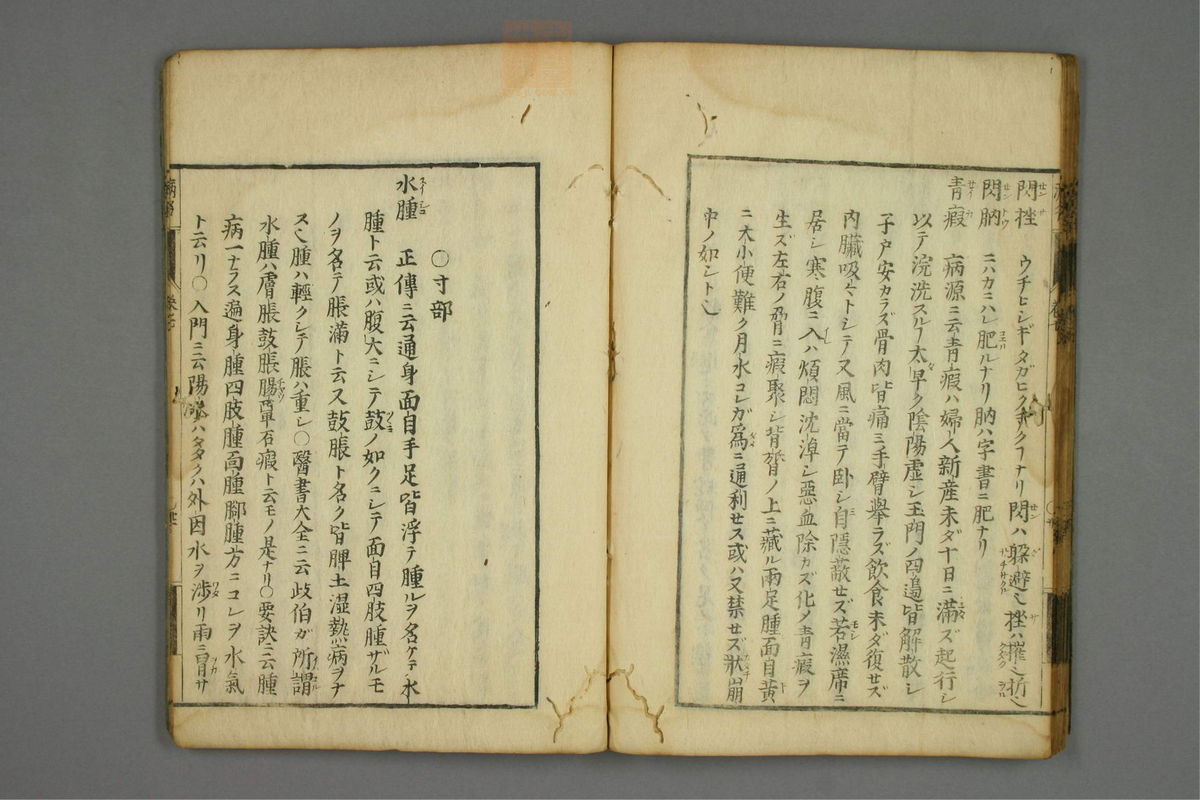 閃挫 ウチヒシギタガヒクジクフナリ閃ハ躱避也挫ハ摧也折也
閃肭 ニハカニハレ肥ルナリ肭ハ字書ニ肥ナリ
青瘕 病源ニ云青瘕ハ婦人新産未ダ十日ニ滿ズ起行シ
以テ浣洗スルフ太早ク陰陽虚シ玉門ノ四邉皆解散シ
子戸安カラズ骨肉皆痛ミ手臂舉ラズ飲食未ダ復セズ
内臓吸々トシテ又風ニ當テ卧シ自隠蔽セズ若濕席ニ
居シ寒腹ニ入ハ煩悶沈淖シ惡血除カズ化ノ青瘕ヲ
生ズ左右ノ脅ニ瘕聚シ背膂ノ上ニ藏ル兩足腫面目黄
ニ大小便難ク月水コレガ爲ニ通利セス或ハ又禁セズ狀崩
中ノ如シト也
〇寸部
水腫 正傳ニ云通身面目手足皆浮テ腫ルヲ名ケテ水
腫ト云或ハ腹大ニシテ鼓ノ如クニシテ面目四肢腫ザルモ
ノヲ名テ脹滿ト云ス鼓脹ト名ク皆脾土湿熱病ヲナ
ス也腫ハ輕クシテ脹ハ重シ〇醫書大全ニ云歧伯ガ所謂
水腫ハ膚脹鼓脹腸覃石瘕ト云モノ是ナリ〇要訣ニ云腫
病一ナラス遍身腫四肢腫面腫脚腫方ニコレヲ水氣
ト云リ〇入門ニ云陽水ハ多クハ外因水ヲ渉リ雨ニ冐サ